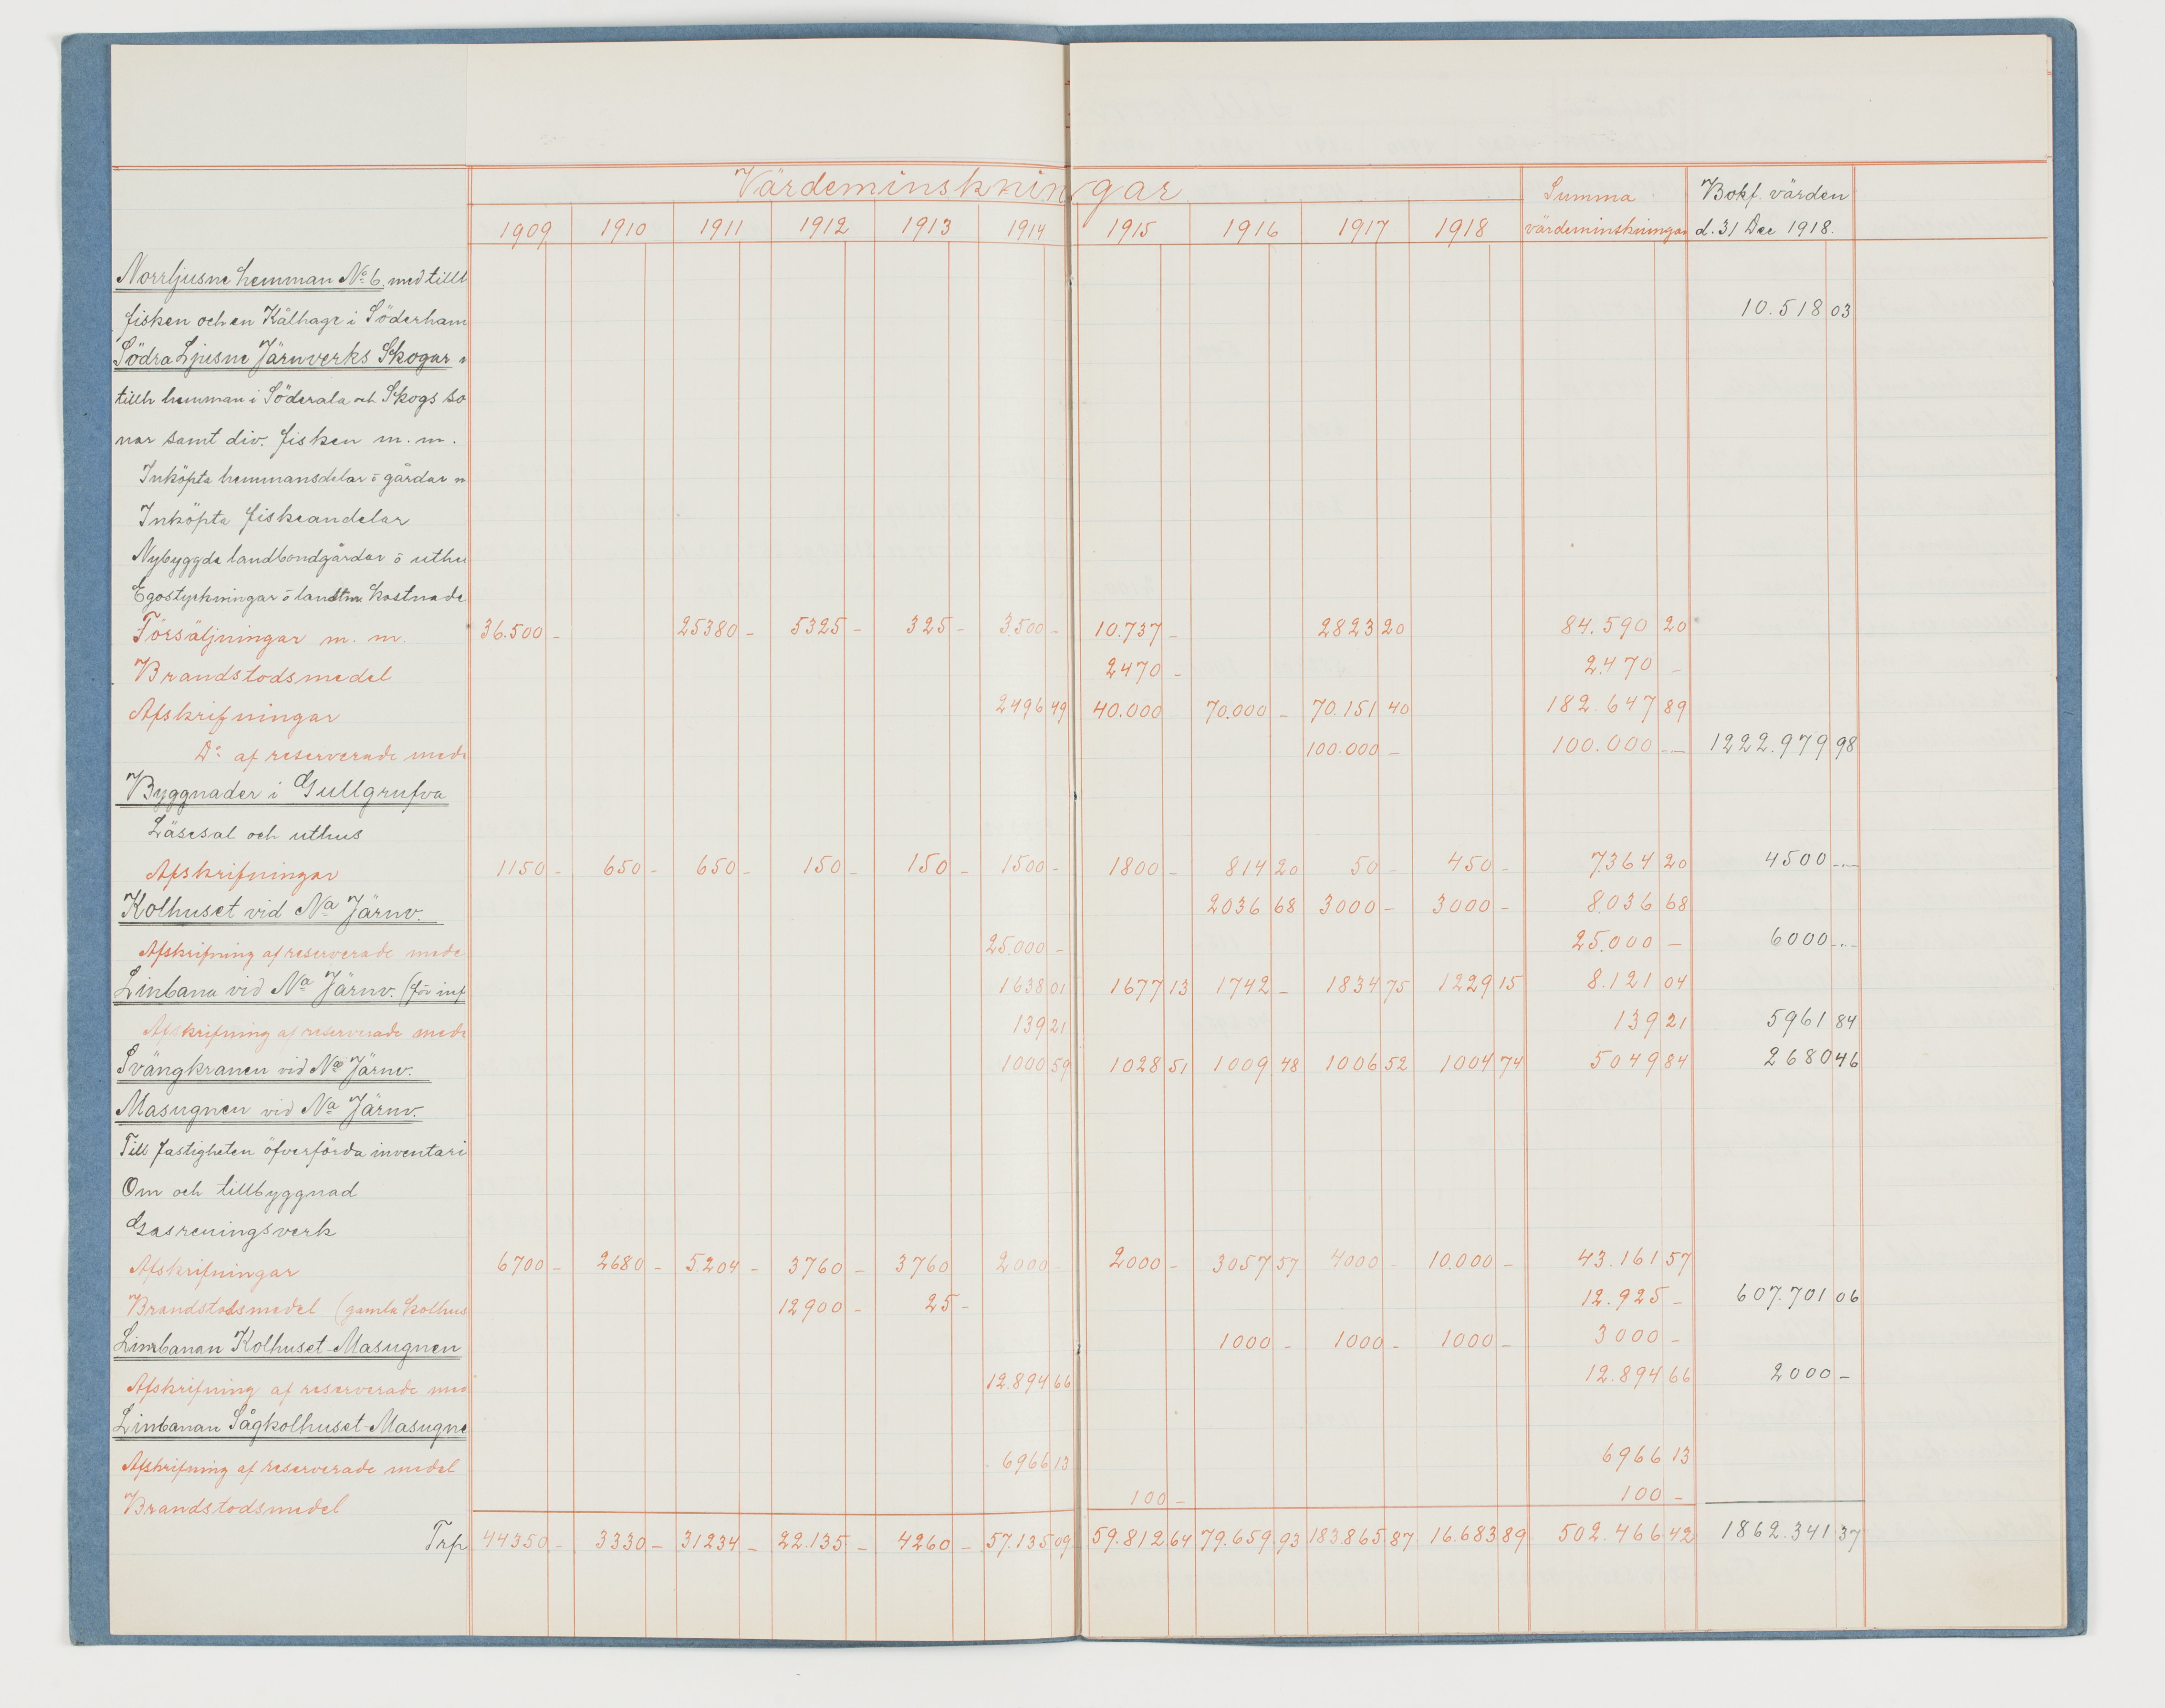 Värdeminskningar Summa Bokf. värden
1909 1910 1911 1912 1913 1914 1915 1916 1917 1918 värdeminskningar d. 31 Dec 1918.
Norrljusne hemman No 6, med tillh
fisken och en Kålhage i Söderham 10.518 03
Södra Ljusne Järnverks Skogar
tillh hemman i Söderala och Skogs so
nar samt div. fisken m. m.
Inköpta hemmansdelar o gårdar m
Inköpta fiskeandelar
Nybyggda landbondgårdar o uthu
Egostyckningar o landtm. kostnade
Försäljningar m. m. 36.500 - 25380 - 5325 - 325 - 3.500 - 10.737 - 2823 20 84.590 20
Brandstodsmedel 2470 - 2.470 -
Afskrifningar 2496 49 40.000 70.000 - 70.151 40 182.647 89
Do af reserverade mede 100.000 - 100.000 - 1222.979 98
Byggnader i Gullgrufva
Läsesal och uthus
Afskrifningar 1150 - 650 - 650 - 150 - 150 - 1500 - 1800 - 814 20 50 - 450 - 7.364 20 4500 -
Kolhuset vid Na Järnv. 2036 68 3000 - 3000 - 8.036 68
Afskrifning af reserverade mede 25.000 - 25.000 - 6000 -
Linbana vid Na Järnv. (för inf 1638 01 1677 13 1742 - 1834 75 1229 15 8.121 04
Afskrifning af reserverade mede 139 21 139 21 5961 84
Svängkranen vid Na Järnv. 1000 59 1028 51 1009 48 1006 52 1004 74 5049 84 2680 46
Masugnen vid Na Järnv.
Till fastigheten öfverförda inventari
Om och tillbyggnad
Gasreningsverk
Afskrifningar 6700 - 2680 - 5.204 - 3760 - 3760 2000 - 2000 - 3057 57 4000 - 10.000 - 43.161 57
Brandstodsmedel (gamla kolhus 12900 - 25 - 12.925 - 607.701 06
Linbanan Kolhuset-Masugnen 1000 - 1000 - 1000 - 3000 -
Afskrifning af reserverade med 12.894 66 12.894 66 2000 -
Linbanan Sågkolhuset-Masugne
Afskrifning af reserverade medel 6966 13 6966 13
Brandstodsmedel 100 - 100 -
Trp 44350 - 3330 - 31234 - 22.135 - 4260 - 57.135 09 59.812 64 79.659 93 183.865 87 16.683 89 502.466 42 1862.341 37